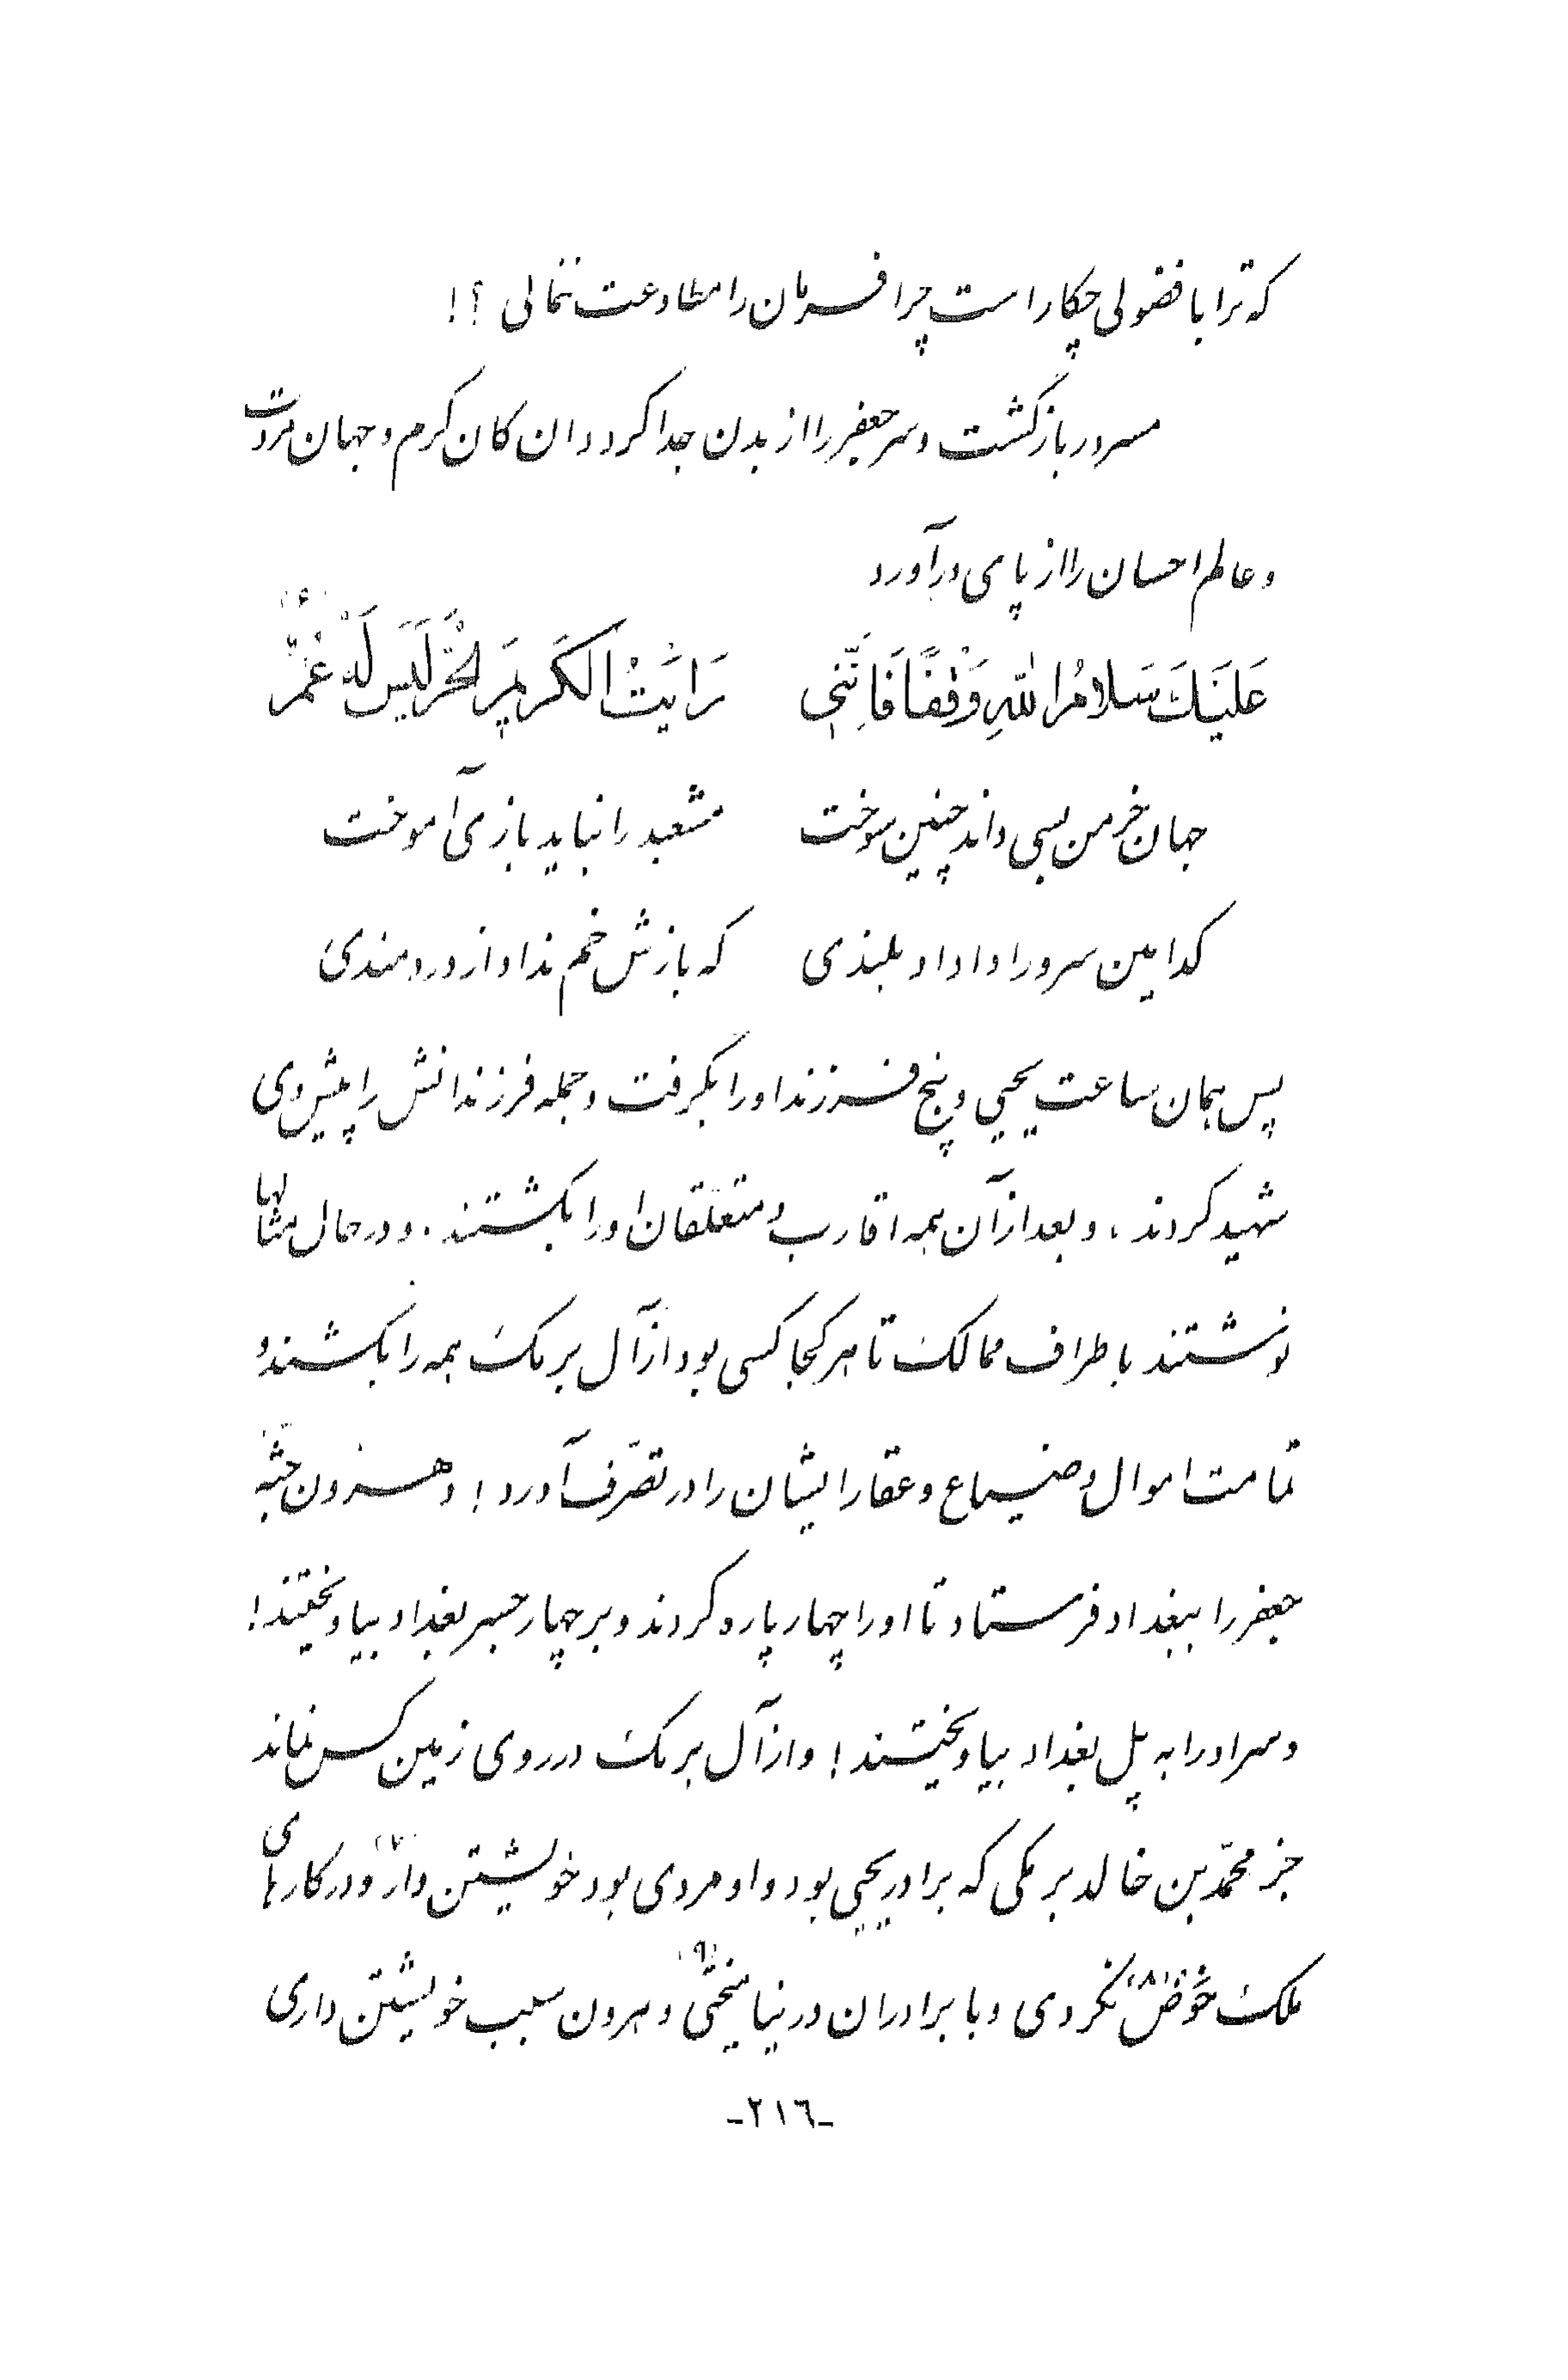 که ترا با فضولی چکار است چرا فرمان را مطاوعت ننمائی ؟!
مسرور بازگشت و سر جعفر را از بدن جدا کرد و ان کان کرم و جهان مروّت
و عالم احسان را از پای درآورد
عَلَیْکَ سَلامُ اللهِ وَقْفًا فَاِنَّنی رَاَیْتُ الکَریمَ الْحُرَّ لَیْسَ لَهُ عُمْرٌ (۶)
جهان خرمن بسی داند چنین سوخت مشعبد را نباید بازی آموخت
کدامین سرو را داد او بلندی که بازش خم نداد از دردمندی
پس همان ساعت یحیی و پنج فرزند او را بگرفت و جمله فرزندانش را پیش وی
شهید کردند ، و بعد از آن همه اقارب و متعلّقان او را بکشتند . و در حال مثالها
نوشتند باطراف ممالک تا هر کجا کسی بود از آل برمک همه را بکشند و
تمامت اموال و ضیاع و عقار ایشان را در تصرّف آورد ! و هرون جثّه
جعفر را ببغداد فرستاد تا او را چهار پاره کردند و بر چهار جسر بغداد بیاویختند !
و سر او را به پل بغداد بیاویختند ! و از آل برمک در روی زمین کس نماند
جز محمّد بن خالد برمکی که برادر یحیی بود و او مردی بود خویشتن دار (۷) و در کارهای
ملک خَوْض (۸) نکردی و با برادران در نیامیختی (۹) و هرون بسبب خویشتن داری
-۲۱۶-